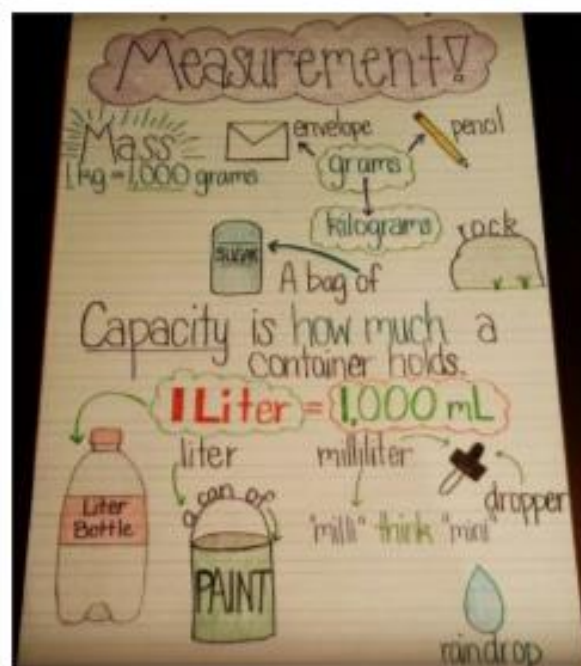 Measurement!
Mass
1 kg = 1,000 grams
envelope
pencil
grams
kilograms
rock
SUGAR
A bag of
Capacity is how much a
container holds.
1 Liter = 1,000 mL
liter
milliliter
dropper
Liter
Bottle
a can of
PAINT
"milli" think "mini"
raindrop